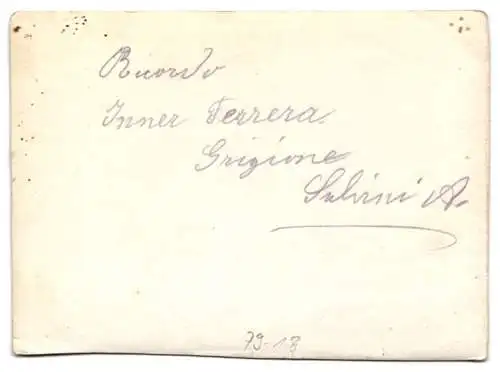 Ricordo
Inner Ferrera
Grigione
Salvini A.
79-13